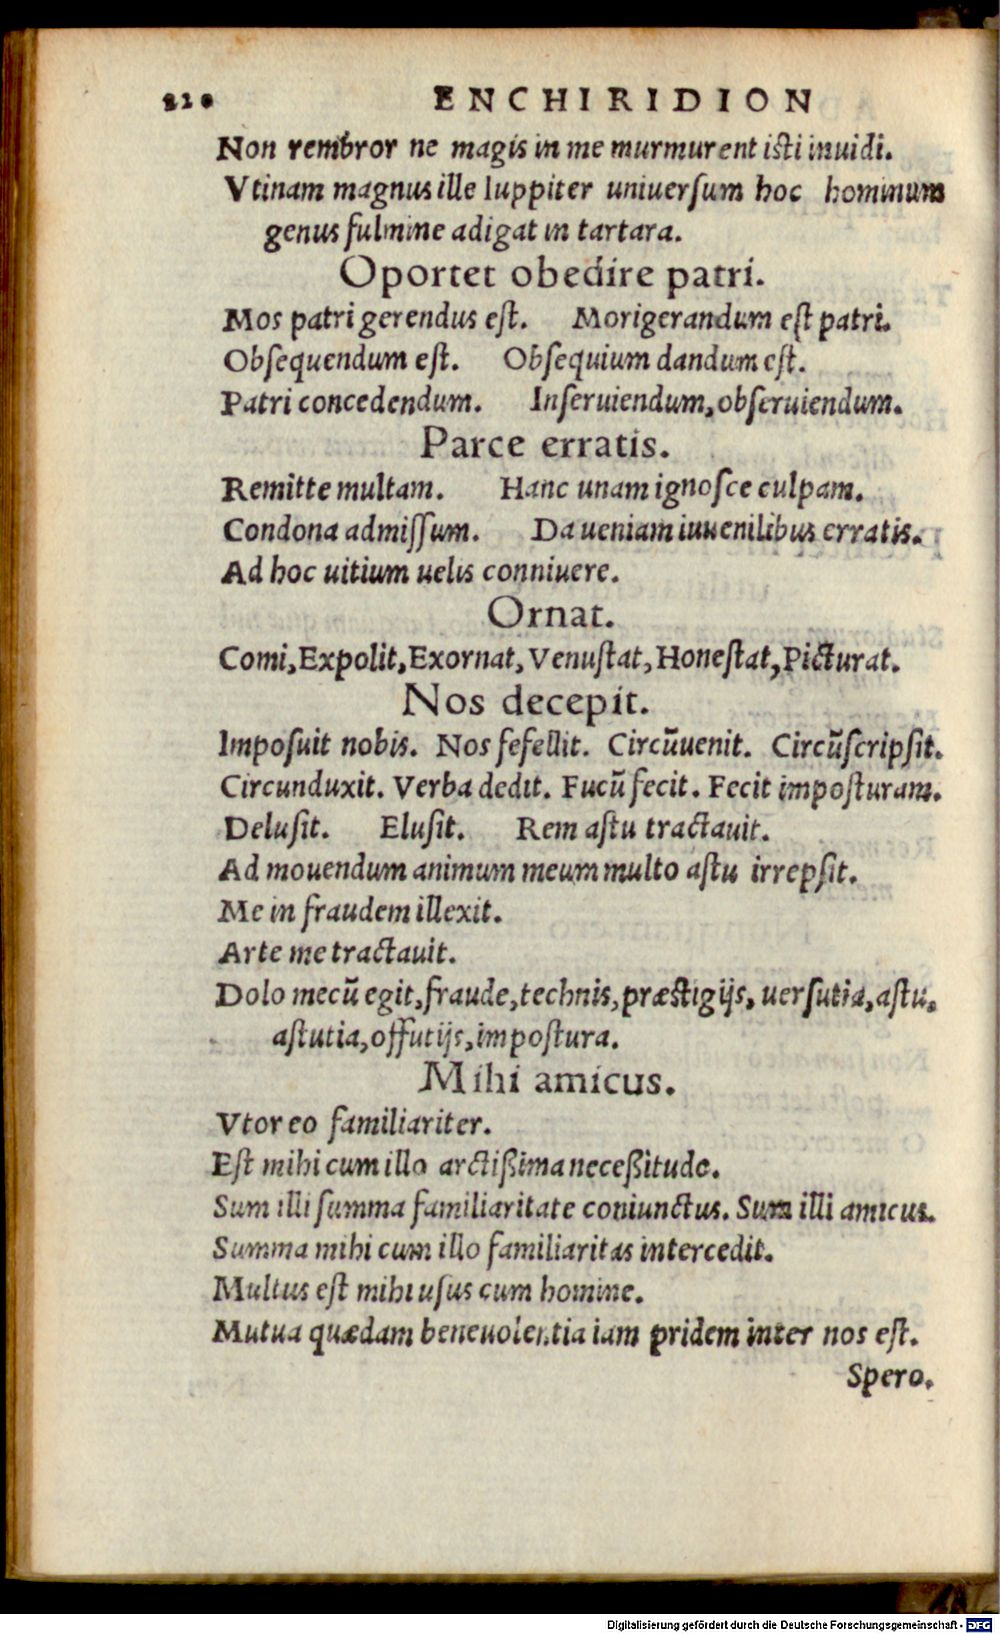 210 ENCHIRIDION
Non rembror ne magis in me murmurent isti inuidi.
Vtinam magnus ille Iuppiter uniuerſum hoc hominum
genus fulmine adigat in tartara.
Oportet obedire patri.
Mos patri gerendus eſt. Morigerandum eſt patri.
Obſequendum eſt. Obſequium dandum eſt.
Patri concedendum. Inſeruiendum, obſeruiendum.
Parce erratis.
Remitte multam. Hanc unam ignoſce culpam.
Condona admiſſum. Da ueniam iuuenilibus erratis.
Ad hoc uitium uelis conniuere.
Ornat.
Comi, Expolit, Exornat, Venuſtat, Honeſtat, Picturat.
Nos decepit.
Impoſuit nobis. Nos fefellit. Circũuenit. Circũſcripſit.
Circunduxit. Verba dedit. Fucũ fecit. Fecit impoſturam.
Deluſit. Eluſit. Rem aſtu tractauit.
Ad mouendum animum meum multo aſtu irrepſit.
Me in fraudem illexit.
Arte me tractauit.
Dolo mecũ egit, fraude, technis, præſtigijs, uerſutia, aſtu,
aſtutia, offutijs, impoſtura.
Mihi amicus.
Vtor eo familiariter.
Eſt mihi cum illo arctißima neceßitudo.
Sum illi ſumma familiaritate coniunctus. Sum illi amicus.
Summa mihi cum illo familiaritas intercedit.
Multus eſt mihi uſus cum homine.
Mutua quædam beneuolentia iam pridem inter nos eſt.
Spero.
Digitalisierung gefördert durch die Deutsche Forschungsgemeinschaft - DFG